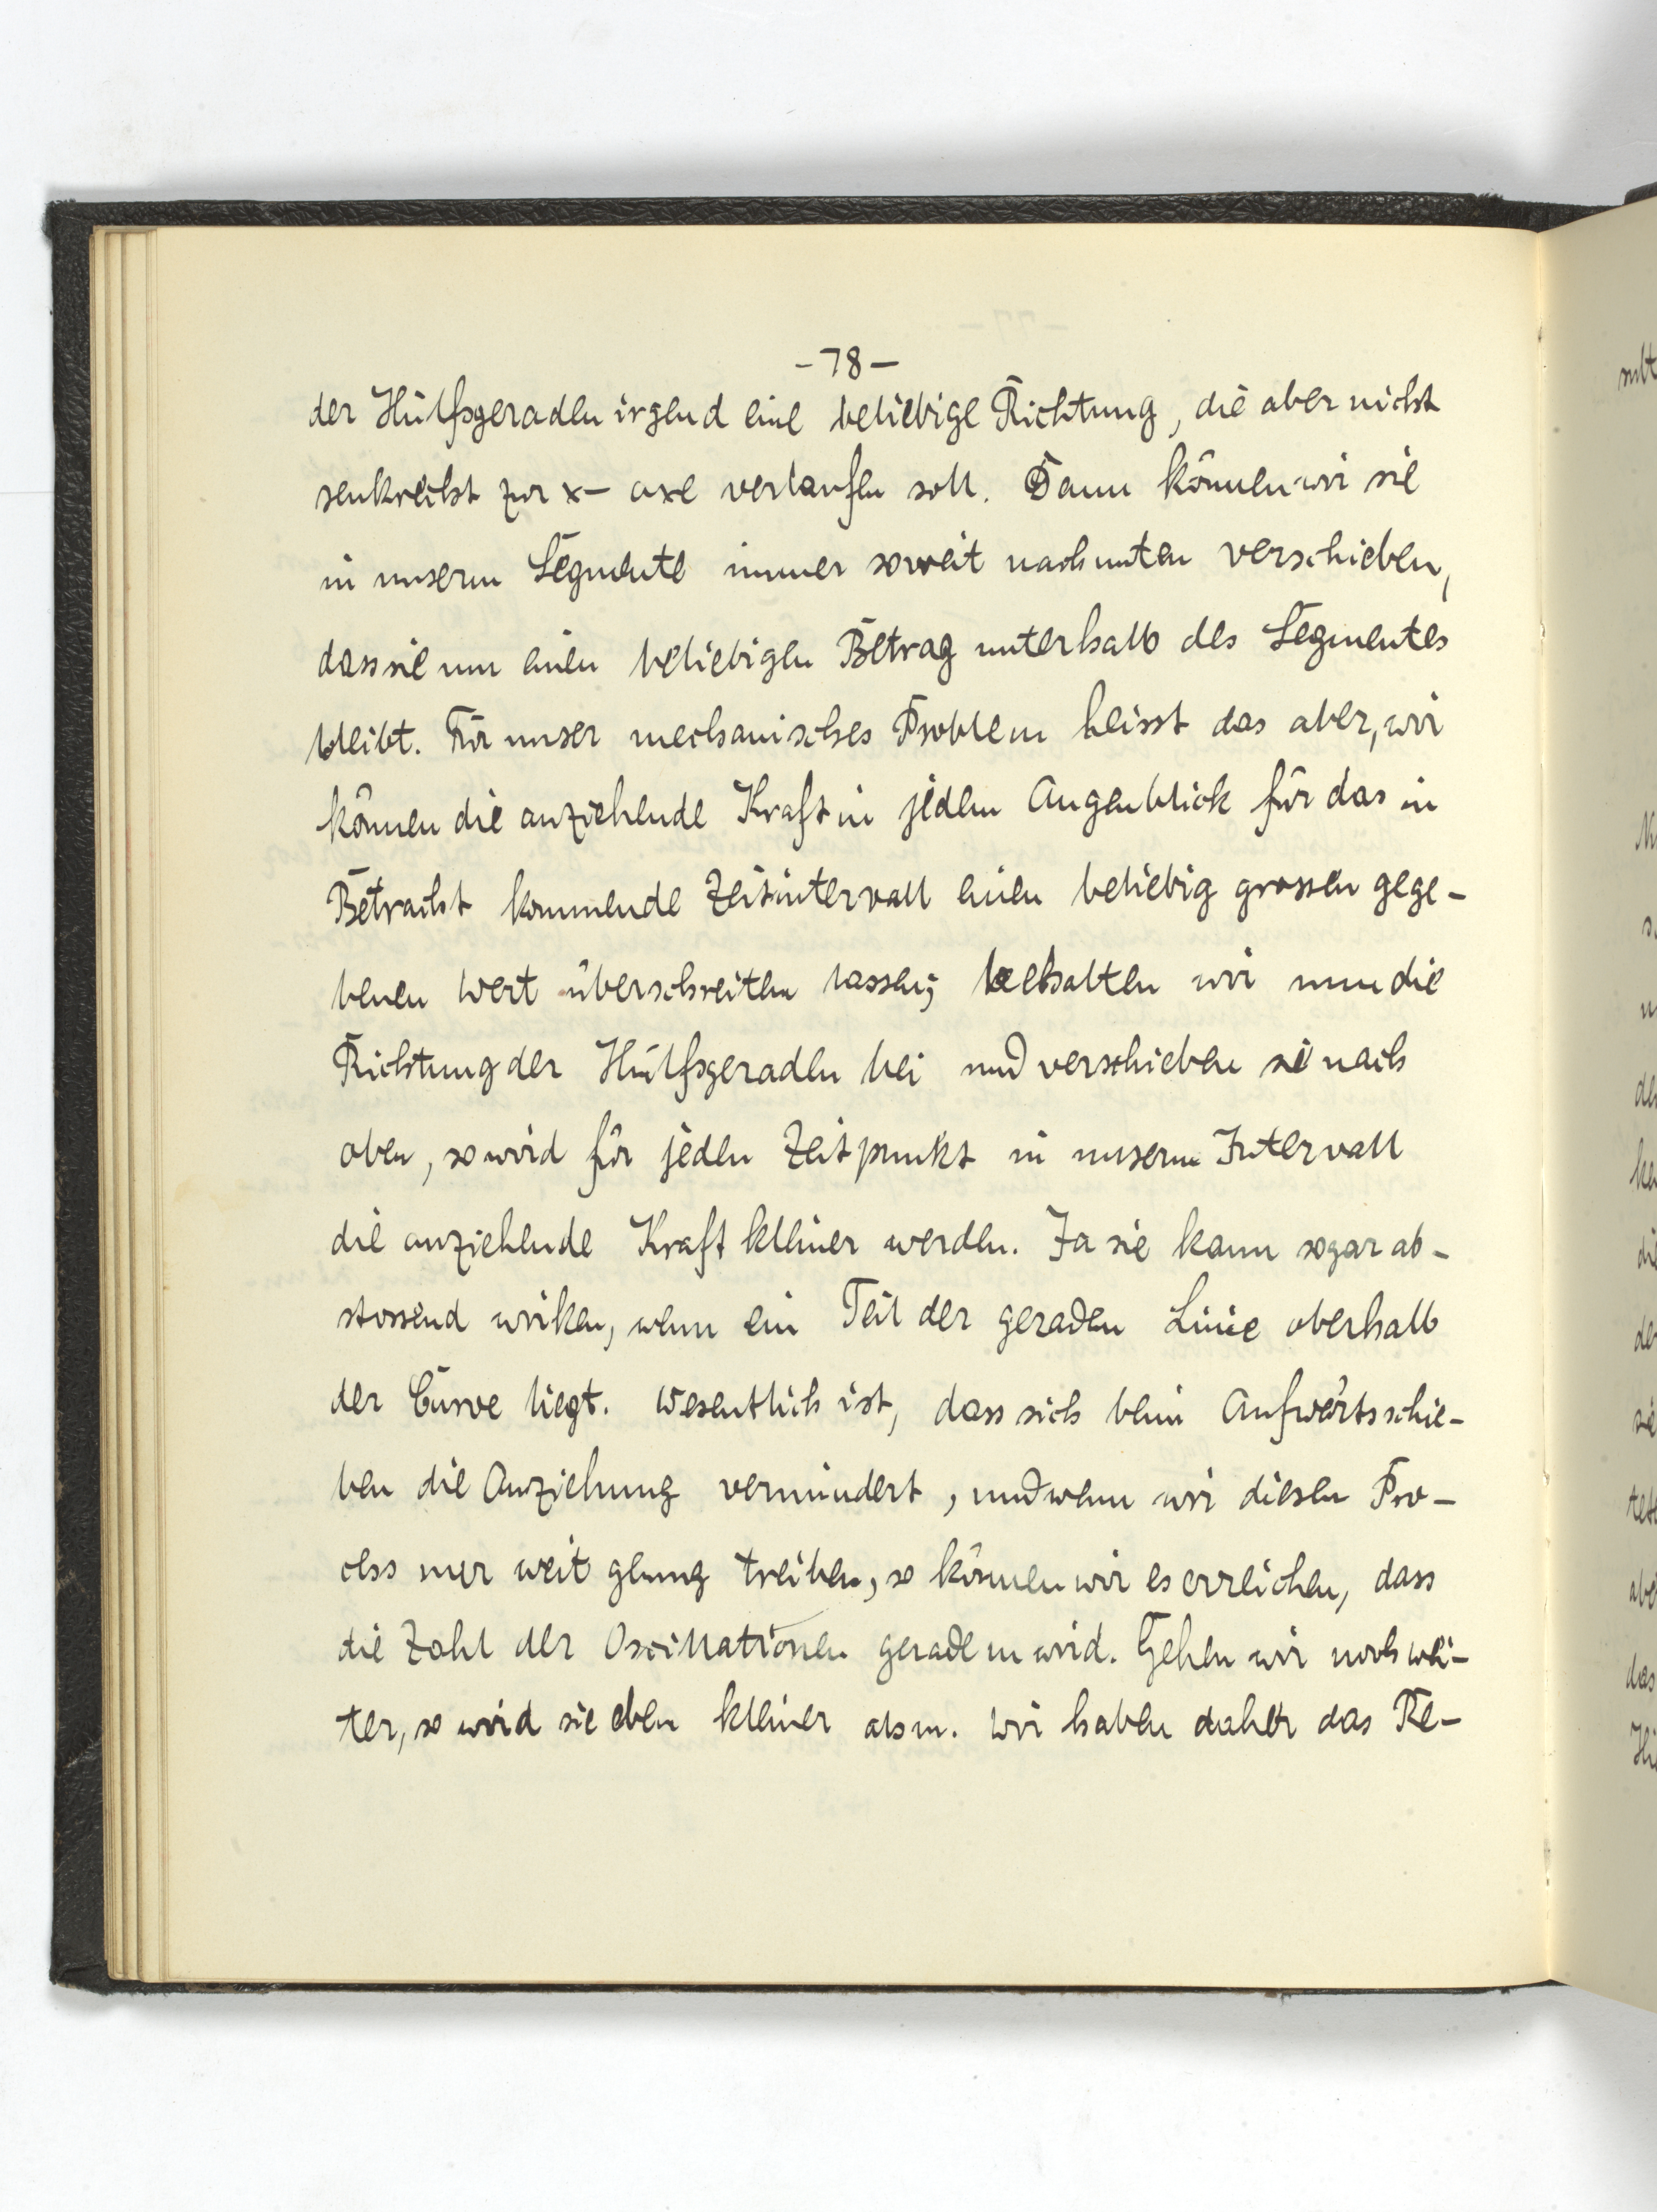 -78-
der Hülfsgeraden irgend eine beliebige Richtung, die aber nicht
senkrecht zur x- axe verlaufen soll. Dann können wir sie
in unserm Segmente immer soweit nach unten verschieben,
dass sie um einen beliebigen Betrag unterhalb des Segmentes
bleibt. Für unser mechanisches Problem heisst das aber, wir
können die anziehende Kraft in jedem Augenblick für das in
Betracht kommende Zeitintervall einen beliebig grossen gege-
benen Wert überschreiten lassen; behalten wir nun die
Richtung der Hülfsgeraden bei und verschieben sie nach
oben, so wird für jeden Zeitpunkt in unserm Intervall
die anziehende Kraft kleiner werden. Ja sie kann sogar ab-
stossend wirken, wenn ein Teil der geraden Linie oberhalb
der Curve liegt. Wesentlich ist, dass sich beim Aufwärtsschie-
ben die Anziehung vermindert, und wenn wir diesen Pro-
cess nur weit genug treiben, so können wir es erreichen, dass
die Zahl der Oscillationen gerade m wird. Gehen wir noch wei-
ter, so wird sie eben kleiner als m. Wir haben daher das Re-